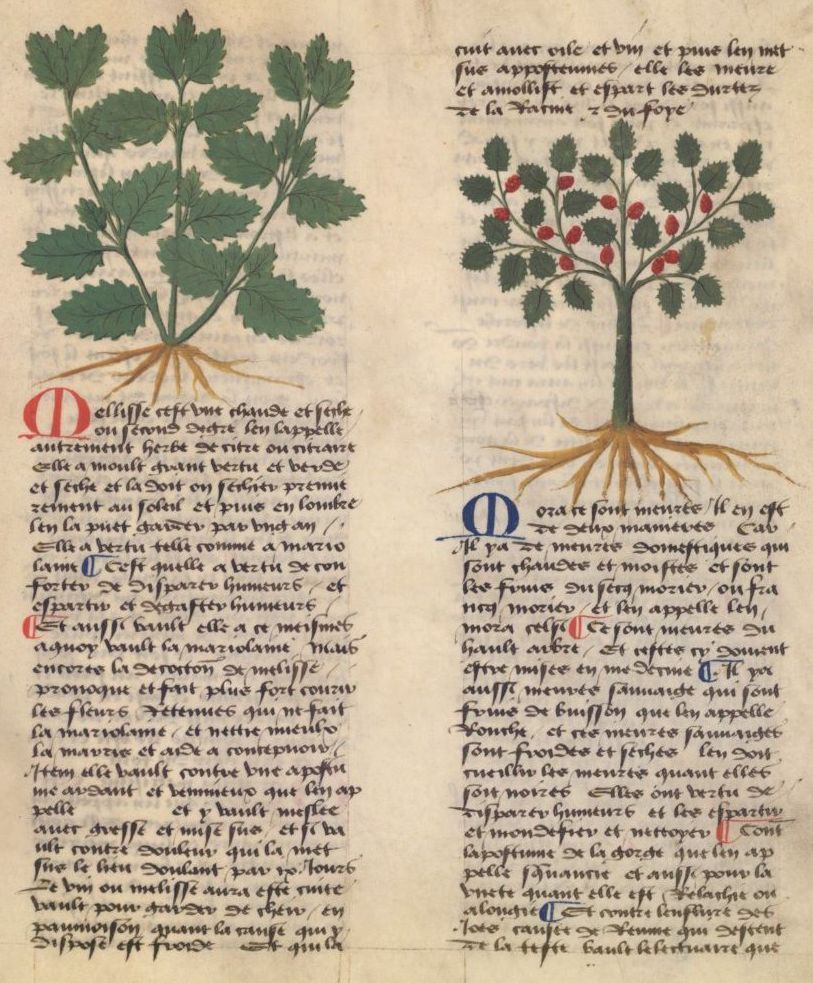 Mellisse cest vne chaude et seche
ou second degre len lappelle
autrement herbe de citre ou citraire
Elle a moult grant vertu et verde
et seche et la doit on sechier premie
rement au soleil et puis en lombre
len la puet garder par vng an
Elle a vertu telle comme a mario
laine Cest quelle a vertu de con
forter de disparer humeurs et
espartir et degaster humeurs
Et aussi vault elle a ce meismes
a quoy vault la mariolaine mais
encores la decoction de melisse
prouoque et fait plus fort courir
les fleurs retenues qui ne fait
la mariolaine et nettie mieulx
la marris et aide a conceptuoir
Item elle vault contre vne apostu
me ardant et venimeux que len ap
pelle et y vault meslee
auec gresse et mise sus et si va
ult contre douleur qui la met
sus le lieu doulant par ix Jours
De vin ou melisse aura este cuite
vault pour garder de cheir en
paumoison quant la cause qui y
dispose est froide Et qui la
cuit auec oile et vin et puis len met
sus appostemes elle les meure
et amollist et espart les durtez
de la Ratine et du foye
Mora ce sont meures Il en est
de deux manieres Car
Il ya de meures domestiques qui
sont chaudes et moistes et sont
les fruis du secq morier ou fra
ncq morier et len appelle len
mora celsi Ce sont meures du
hault arbre Et cestes cy doiuent
estre mises en medecine Il ya
aussi meures sauuaige qui sont
fruis de buisson que len appelle
Ronche et ces meures sauuaiges
sont froides et seches len doit
cueillir les meures quant elles
soit noires Elles ont vertu de
disparer humeurs et les espartir
et mondefier et nettoyer Cont
lapostume de la gorge que len ap
pelle squancie et aussi pour la
vuete quant elle est Relachie ou
alongie Et contre lenflure des
Joes causee de Reume qui descent
de la teste vault lelectuaire que